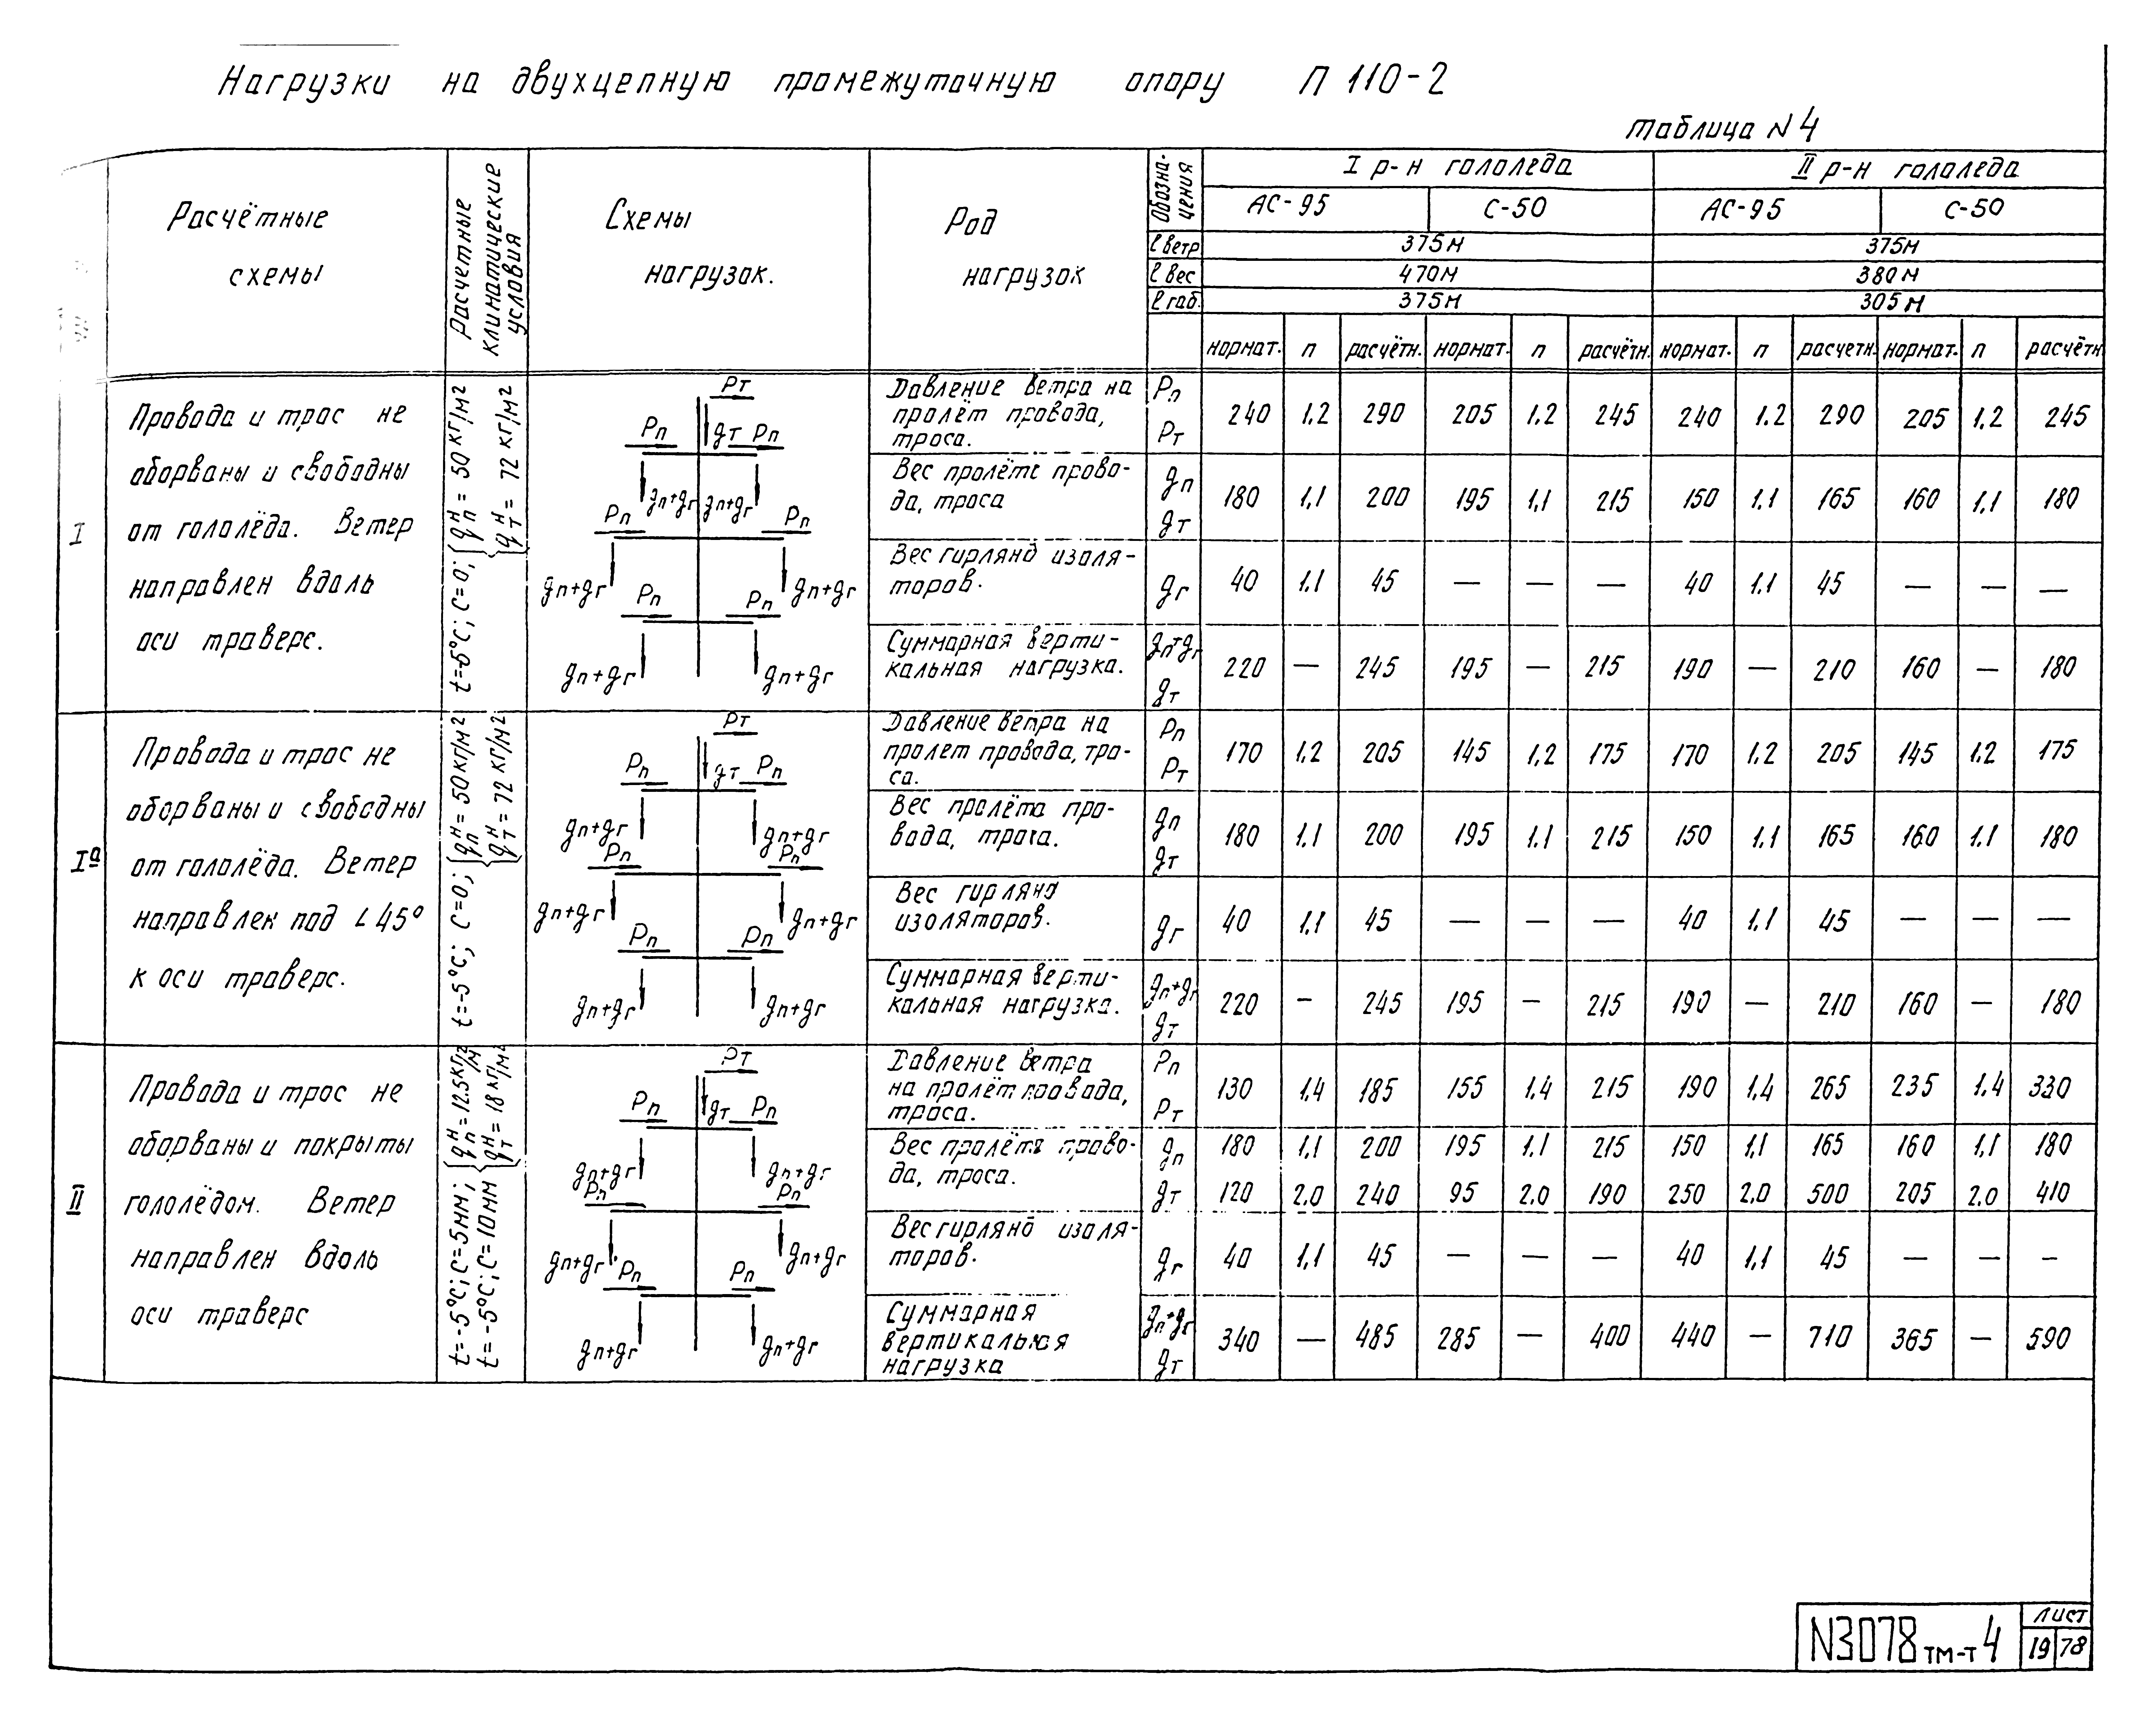 Нагрузки на двухцепную промежуточную опору П 110-2
таблица N 4
Расчётные схемы
Расчетные климатические условия
Схемы нагрузок.
Род нагрузок
Обозна-
чения
I р-н гололеда
II р-н гололеда
АС-95 С-50 АС-95 С-50
l ветр 375м 375м
l вес 470м 380м
l габ. 375м 305м
нормат. п расчётн. нормат. п расчётн. нормат. п расчетн. нормат. п расчётн
I
Провода и трос не
оборваны и свободны
от гололёда. Ветер
направлен вдоль
оси траверс.
t=-5°C; C=0; { qнп = 50 кг/м² qнт = 72 кг/м²
Рт
Рп gт Рп
gп+gг gп+gг
Рп Рп
gп+gг gп+gг
Рп Рп
gп+gг gп+gг
Давление ветра на
пролёт провода,
троса.
Рп
Рт
240 1.2 290 205 1.2 245 240 1.2 290 205 1.2 245
Вес пролёта прово-
да, троса
gп
gт
180 1.1 200 195 1.1 215 150 1.1 165 160 1.1 180
Вес гирлянд изоля-
торов.
gг
40 1.1 45 — — — 40 1.1 45 — — —
Суммарная верти-
кальная нагрузка.
gп+gг
gт
220 — 245 195 — 215 190 — 210 160 — 180
Iа
Провода и трос не
оборваны и свободны
от гололёда. Ветер
направлен под ∠45°
к оси траверс.
t=-5°C; C=0; { qнп = 50 кг/м² qнт = 72 кг/м²
Рт
Рп gт Рп
gп+gг gп+gг
Рп Рп
gп+gг gп+gг
Рп Рп
gп+gг gп+gг
Давление ветра на
пролет провода, тро-
са.
Рп
Рт
170 1.2 205 145 1.2 175 170 1.2 205 145 1.2 175
Вес пролёта про-
вода, троса.
gп
gт
180 1.1 200 195 1.1 215 150 1.1 165 160 1.1 180
Вес гирлянд
изоляторов.
gг
40 1.1 45 — — — 40 1.1 45 — — —
Суммарная верти-
кальная нагрузка.
gп+gг
gт
220 — 245 195 — 215 190 — 210 160 — 180
II
Провода и трос не
оборваны и покрыты
гололёдом. Ветер
направлен вдоль
оси траверс
t=-5°C; C=5мм; { qнп = 12.5 кг/м²
t=-5°C; C=10мм { qнт = 18 кг/м²
Рт
Рп gт Рп
gп+gг gп+gг
Рп Рп
gп+gг gп+gг
Рп Рп
gп+gг gп+gг
Давление ветра
на пролёт провода,
троса.
Рп
Рт
130 1.4 185 155 1.4 215 190 1.4 265 235 1.4 330
Вес пролёта прово-
да, троса.
gп 180 1.1 200 195 1.1 215 150 1.1 165 160 1.1 180
gт 120 2.0 240 95 2.0 190 250 2.0 500 205 2.0 410
Вес гирлянд изоля-
торов.
gг
40 1.1 45 — — — 40 1.1 45 — — —
Суммарная
вертикальная
нагрузка
gп+gг
gт
340 — 485 285 — 400 440 — 710 365 — 590
N3078тм-т4
лист
19 78